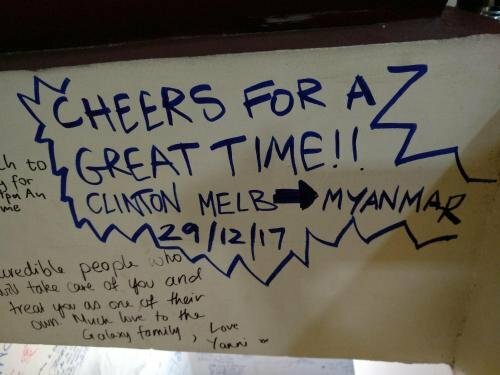 CHEERS FOR A
GREAT TIME!!
CLINTON MELB → MYANMAR
29/12/17
ch to
for
me
credible people who
will take care of you and
treat you as one of their
own. Much love to the
Galaxy family, Love
Yanni